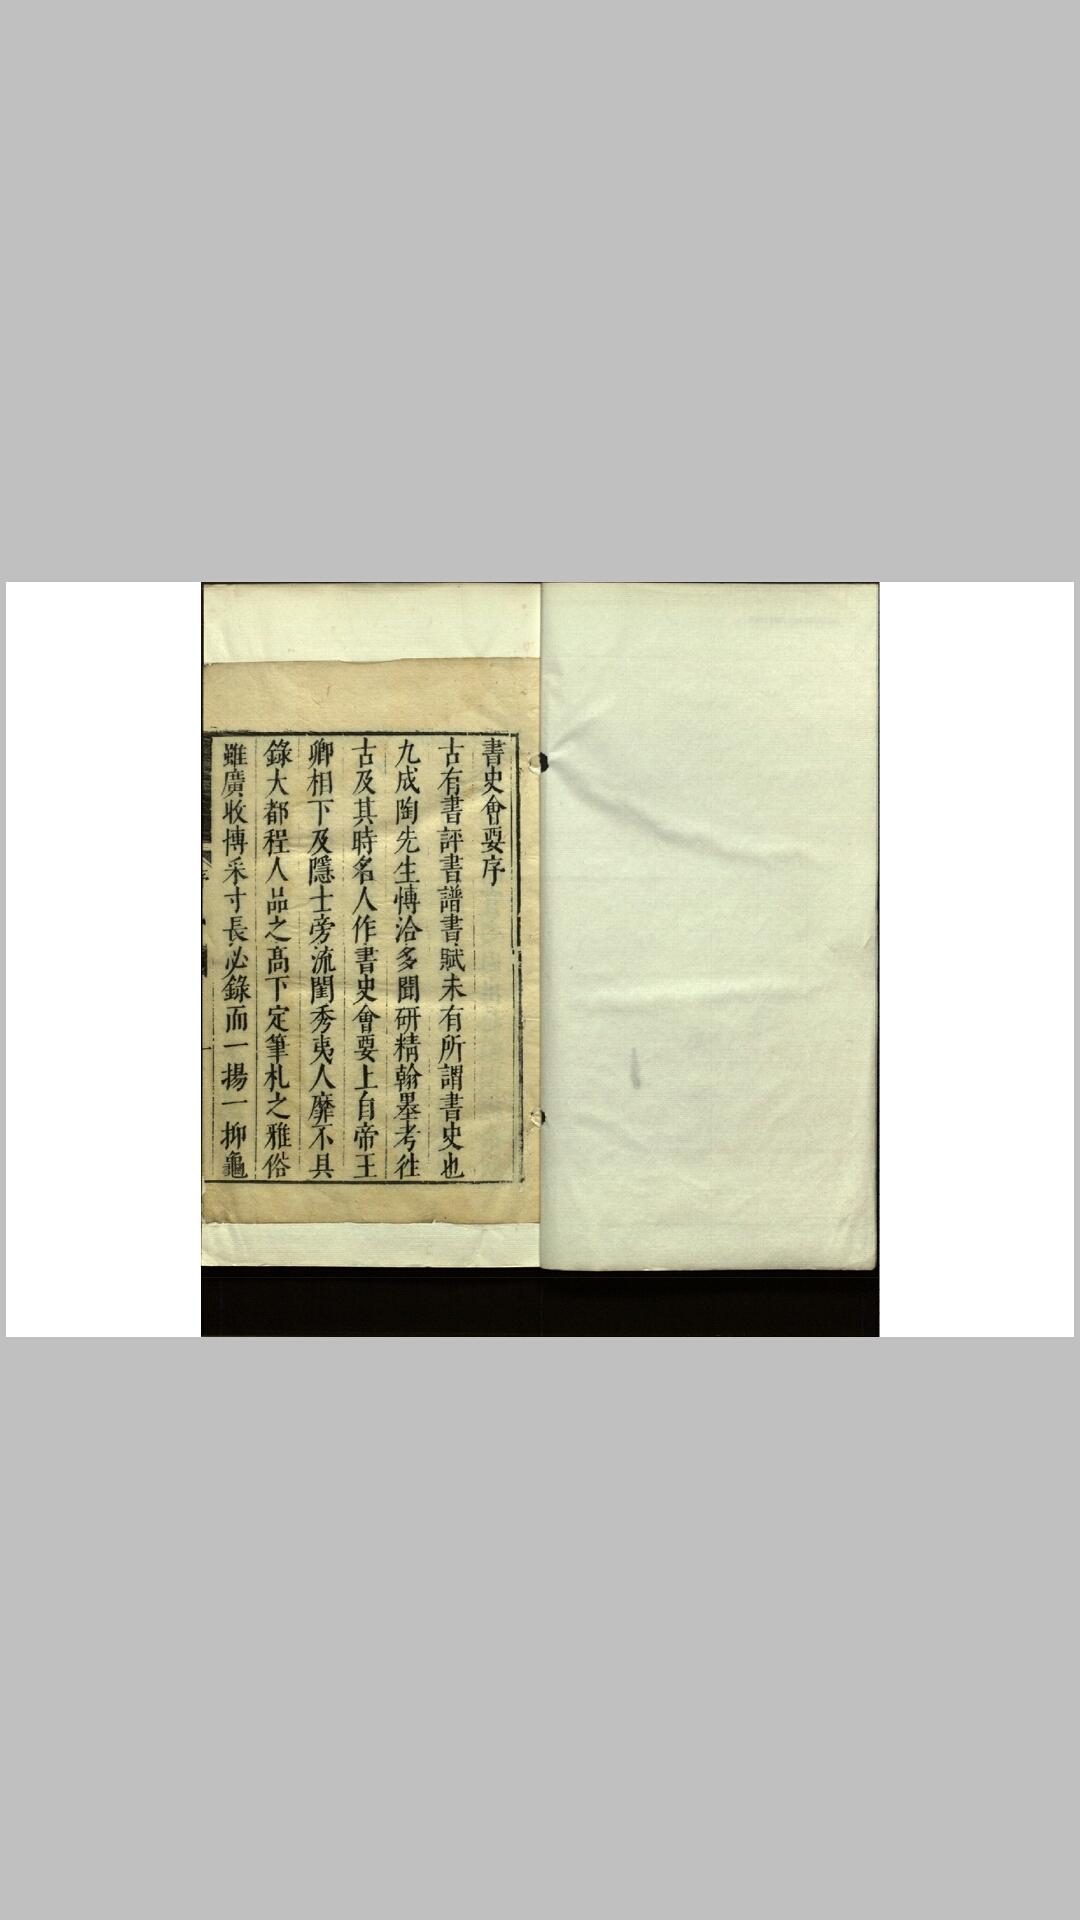 書史會要序
古有書評書譜書賦未有所謂書史也
九成陶先生愽洽多聞研精翰墨考徃
古及其時名人作書史會要上自帝王
卿相下及隱士旁流閨秀夷人靡不具
錄大都程人品之髙下定筆札之雅俗
雖廣收博采寸長必錄而一揚一抑龜